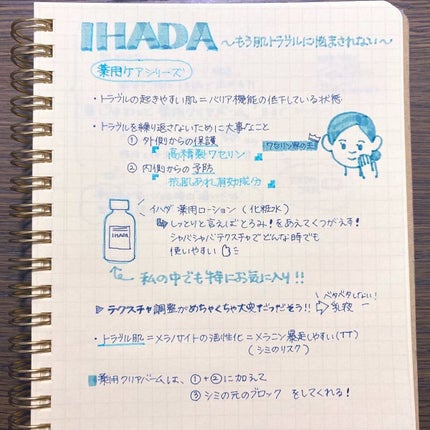 IHADA ～もう肌トラブルに悩まされない～
薬用ケアシリーズ
・トラブルの起きやすい肌＝バリア機能の低下している状態
・トラブルを繰り返さないために大事なこと
① 外側からの保護
高精製ワセリン
② 内側からの予防
抗肌あれ有効成分
IHADA
イハダ 薬用ローション（化粧水）
しっとりと言えばとろみ！をあえてくつがえす！
シャバシャバテクスチャでどんな時でも
使いやすい
私の中でも特にお気に入り!!
テクスチャ調整がめちゃくちゃ大変だったそう!!
ベタベタしない！
乳液
・トラブル肌＝メラノサイトの活性化＝メラニン暴走しやすい(TT)
（シミのリスク）
薬用クリアバームは、①＋②に加えて
③シミの元のブロック をしてくれる！